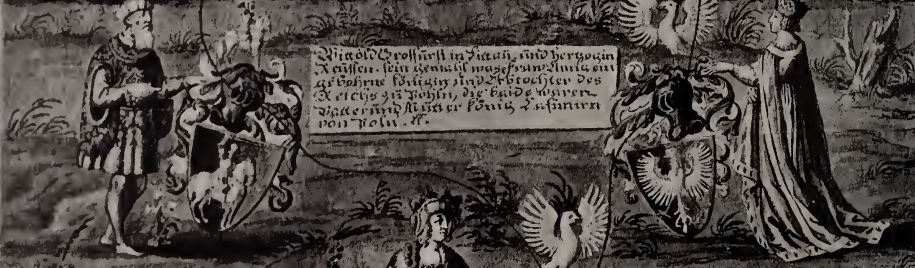 Witold Grossfürst in Littau, und Hertzog in
Reussen. sein gemahl was ein
gebohrne königin und Erbtochter des
Reichs zu Pohln, die baide waren
Vatter und Mutter König Casimirn
von Poln. &c.